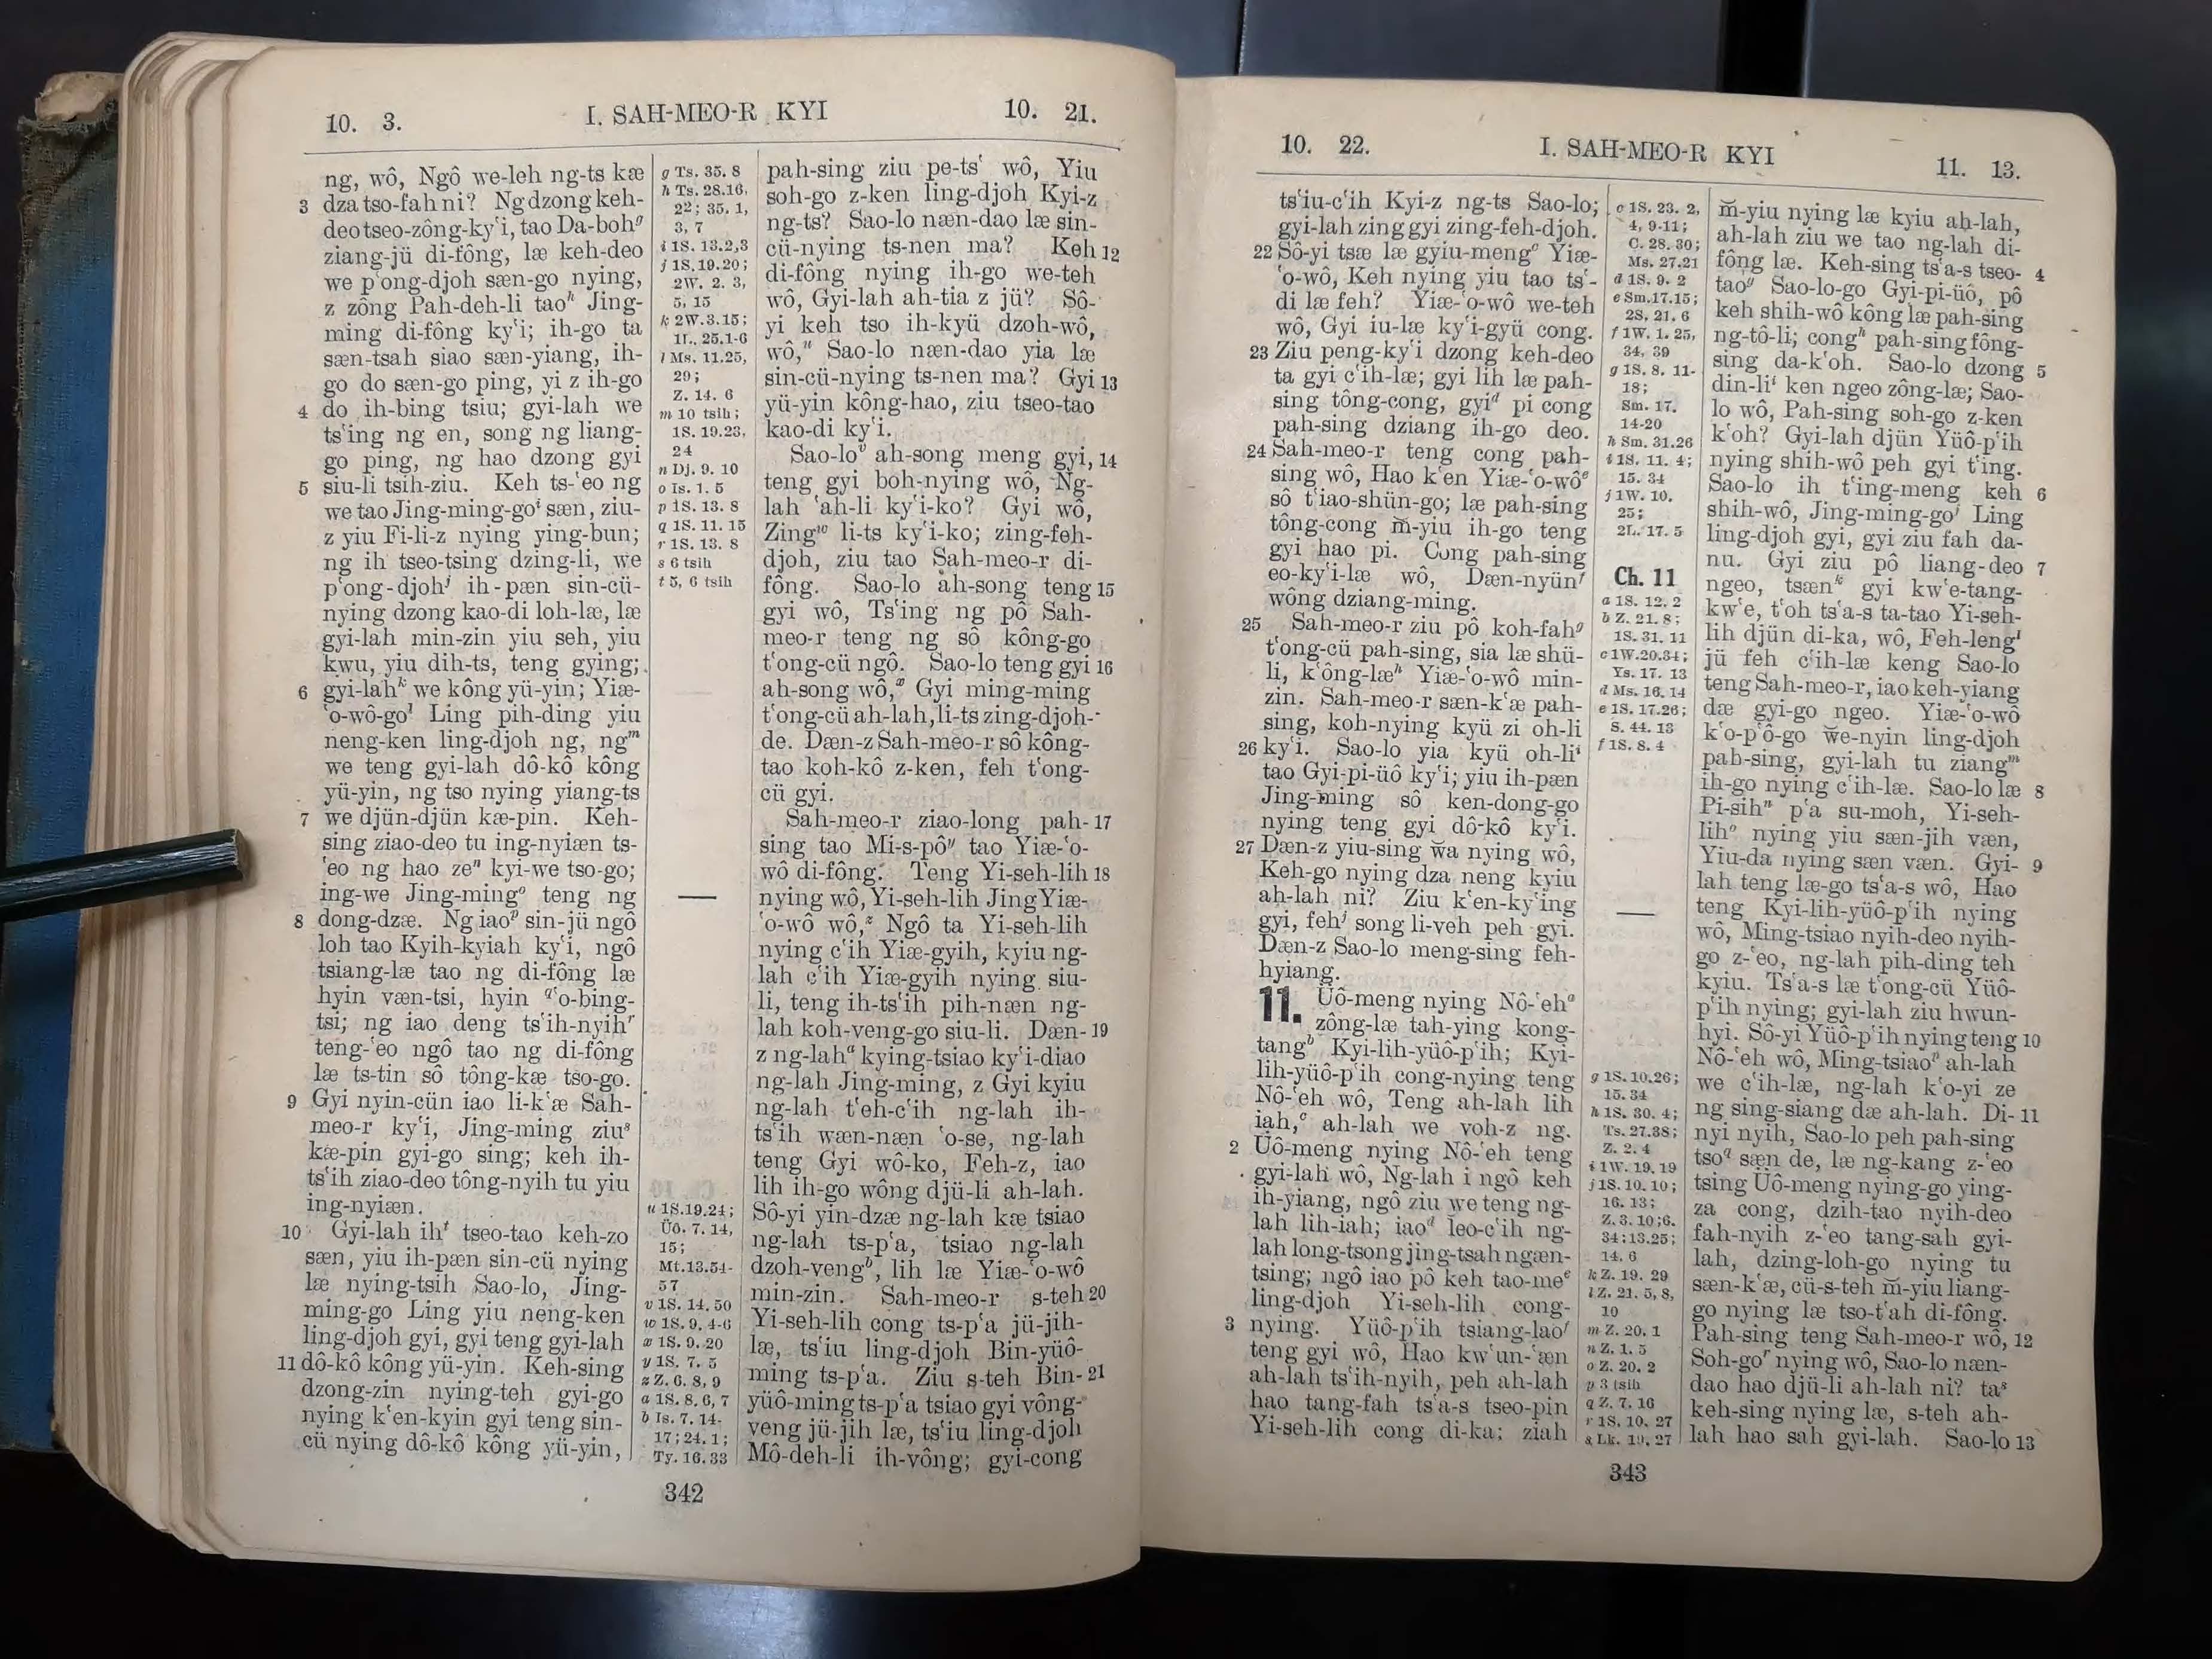 10. 3.
I. SAH-MEO-R KYI
10. 21.
ng, wô, Ngô we-leh ng-ts kæ
3 dza tso-fah ni? Ng dzong keh-
deo tseo-zông-kyʻi, tao Da-bohᵍ
ziang-jü di-fông, læ keh-deo
we pʻong-djoh sæn-go nying,
z zông Pah-deh-li taoʰ Jing-
ming di-fông kyʻi; ih-go ta
sæn-tsah siao sæn-yiang, ih-
go do sæn-go ping, yi z ih-go
4 do ih-bing tsiu; gyi-lah we
tsʻing ng en, song ng liang-
go ping, ng hao dzong gyi
5 siu-li tsih-ziu. Keh ts-ʻeo ng
we tao Jing-ming-goⁱ sæn, ziu-
z yiu Fi-li-z nying ying-bun;
ng ih tseo-tsing dzing-li, we
pʻong-djohʲ ih-pæn sin-cü-
nying dzong kao-di loh-læ, læ
gyi-lah min-zin yiu seh, yiu
kwu, yiu dih-ts, teng gying;
6 gyi-lahᵏ we kông yü-yin; Yiæ-
ʻo-wô-goˡ Ling pih-ding yiu
neng-ken ling-djoh ng, ngᵐ
we teng gyi-lah dô-kô kông
yü-yin, ng tso nying yiang-ts
7 we djün-djün kæ-pin. Keh-
sing ziao-deo tu ing-nyiæn ts-
ʻeo ng hao zeⁿ kyi-we tso-go;
ing-we Jing-mingᵒ teng ng
8 dong-dzæ. Ng iaoᵖ sin-jü ngô
loh tao Kyih-kyiah kyʻi, ngô
tsiang-læ tao ng di-fông læ
hyin væn-tsi, hyin qʻo-bing-
tsi; ng iao deng tsʻih-nyihʳ
teng-ʻeo ngô tao ng di-fông
læ ts-tin sô tông-kæ tso-go.
9 Gyi nyin-cün iao li-kʻæ Sah-
meo-r kyʻi, Jing-ming ziuˢ
kæ-pin gyi-go sing; keh ih-
tsʻih ziao-deo tông-nyih tu yiu
ing-nyiæn.
10 Gyi-lah ihᵗ tseo-tao keh-zo
sæn, yiu ih-pæn sin-cü nying
læ nying-tsih Sao-lo, Jing-
ming-go Ling yiu neng-ken
ling-djoh gyi, gyi teng gyi-lah
11 dô-kô kông yü-yin. Keh-sing
dzong-zin nying-teh gyi-go
nying kʻen-kyin gyi teng sin-
cü nying dô-kô kông yü-yin,
g Ts. 35. 8
h Ts. 28.16,
22; 35. 1,
3, 7
i 1S. 13.2,3
j 1S. 19.20;
2W. 2. 3,
5, 15
k 2W.3.15;
1L. 25.1-6
l Ms. 11.25,
29;
Z. 14. 6
m 10 tsih;
1S. 19.23,
24
n Dj. 9. 10
o Is. 1. 5
p 1S. 13. 8
q 1S. 11. 15
r 1S. 13. 8
s 6 tsih
t 5, 6 tsih
u 1S.19.24;
Üô. 7. 14,
15;
Mt.13.54-
57
v 1S. 14. 50
w 1S. 9. 4-6
x 1S. 9. 20
y 1S. 7. 5
z Z. 6. 8, 9
a 1S. 8. 6, 7
b Is. 7. 14-
17; 24. 1;
Ty. 16. 33
pah-sing ziu pe-tsʻ wô, Yiu
soh-go z-ken ling-djoh Kyi-z
ng-ts? Sao-lo næn-dao læ sin-
cü-nying ts-nen ma? Keh 12
di-fông nying ih-go we-teh
wô, Gyi-lah ah-tia z jü? Sô-
yi keh tso ih-kyü dzoh-wô,
wô,ᵘ Sao-lo næn-dao yia læ
sin-cü-nying ts-nen ma? Gyi 13
yü-yin kông-hao, ziu tseo-tao
kao-di kyʻi.
Sao-loᵛ ah-song meng gyi, 14
teng gyi boh-nying wô, Ng-
lah ʻah-li kyʻi-ko? Gyi wô,
Zingʷ li-ts kyʻi-ko; zing-feh-
djoh, ziu tao Sah-meo-r di-
fông. Sao-lo ah-song teng 15
gyi wô, Tsʻing ng pô Sah-
meo-r teng ng sô kông-go
tʻong-cü ngô. Sao-lo teng gyi 16
ah-song wô,ˣ Gyi ming-ming
tʻong-cü ah-lah, li-ts zing-djoh-
de. Dæn-z Sah-meo-r sô kông-
tao koh-kô z-ken, feh tʻong-
cü gyi.
Sah-meo-r ziao-long pah- 17
sing tao Mi-s-pôʸ tao Yiæ-ʻo-
wô di-fông. Teng Yi-seh-lih 18
nying wô, Yi-seh-lih Jing Yiæ-
ʻo-wô wô,ᶻ Ngô ta Yi-seh-lih
nying cʻih Yiæ-gyih, kyiu ng-
lah cʻih Yiæ-gyih nying siu-
li, teng ih-tsʻih pih-næn ng-
lah koh-veng-go siu-li. Dæn- 19
z ng-lahᵃ kying-tsiao kyʻi-diao
ng-lah Jing-ming, z Gyi kyiu
ng-lah tʻeh-cʻih ng-lah ih-
tsʻih wæn-næn ʻo-se, ng-lah
teng Gyi wô-ko, Feh-z, iao
lih ih-go wông djü-li ah-lah.
Sô-yi yin-dzæ ng-lah kæ tsiao
ng-lah ts-pʻa, tsiao ng-lah
dzoh-vengᵇ, lih læ Yiæ-ʻo-wô
min-zin. Sah-meo-r s-teh 20
Yi-seh-lih cong ts-pʻa jü-jih-
læ, tsʻiu ling-djoh Bin-yüô-
ming ts-pʻa. Ziu s-teh Bin- 21
yüô-ming ts-pʻa tsiao gyi vông-
veng jü-jih læ, tsʻiu ling-djoh
Mô-deh-li ih-vông; gyi-cong
342
10. 22.
I. SAH-MEO-R KYI
11. 13.
tsʻiu-cʻih Kyi-z ng-ts Sao-lo;
gyi-lah zing gyi zing-feh-djoh.
22 Sô-yi tsæ læ gyiu-mengᶜ Yiæ-
ʻo-wô, Keh nying yiu tao tsʻ-
di læ feh? Yiæ-ʻo-wô we-teh
wô, Gyi iu-læ kyʻi-gyü cong.
23 Ziu peng-kyʻi dzong keh-deo
ta gyi cʻih-læ; gyi lih læ pah-
sing tông-cong, gyiᵈ pi cong
pah-sing dziang ih-go deo.
24 Sah-meo-r teng cong pah-
sing wô, Hao kʻen Yiæ-ʻo-wôᵉ
sô tʻiao-shün-go; læ pah-sing
tông-cong m̆-yiu ih-go teng
gyi hao pi. Cong pah-sing
eo-kyʻi-læ wô, Dæn-nyünᶠ
wông dziang-ming.
25 Sah-meo-r ziu pô koh-fahᵍ
tʻong-cü pah-sing, sia læ shü-
li, kʻông-læʰ Yiæ-ʻo-wô min-
zin. Sah-meo-r sæn-kʻæ pah-
sing, koh-nying kyü zi oh-li
26 kyʻi. Sao-lo yia kyü oh-liⁱ
tao Gyi-pi-üô kyʻi; yiu ih-pæn
Jing-ming sô ken-dong-go
nying teng gyi dô-kô kyʻi.
27 Dæn-z yiu-sing w̆a nying wô,
Keh-go nying dza neng kyiu
ah-lah ni? Ziu kʻen-kyʻing
gyi, fehʲ song li-veh peh gyi.
Dæn-z Sao-lo meng-sing feh-
hyiang.
11. Üô-meng nying Nô-ʻehᵃ
zông-læ tah-ying kong-
tangᵇ Kyi-lih-yüô-pʻih; Kyi-
lih-yüô-pʻih cong-nying teng
Nô-ʻeh wô, Teng ah-lah lih
iah,ᶜ ah-lah we voh-z ng.
2 Üô-meng nying Nô-ʻeh teng
gyi-lah wô, Ng-lah i ngô keh
ih-yiang, ngô ziu we teng ng-
lah lih-iah; iaoᵈ leo-cʻih ng-
lah long-tsong jing-tsah ngæn-
tsing; ngô iao pô keh tao-meᵉ
ling-djoh Yi-seh-lih cong-
3 nying. Yüô-pʻih tsiang-laoᶠ
teng gyi wô, Hao kwʻun-ʻæn
ah-lah tsʻih-nyih, peh ah-lah
hao tang-fah tsʻa-s tseo-pin
Yi-seh-lih cong di-ka; ziah
c 1S. 23. 2,
4, 9-11;
C. 28. 30;
Ms. 27.21
d 1S. 9. 2
e Sm.17.15;
2S. 21. 6
f 1W. 1. 25,
34, 39
g 1S. 8. 11-
18;
Sm. 17.
14-20
h Sm. 31.26
i 1S. 11. 4;
15. 34
j 1W. 10.
25;
2L. 17. 5
Ch. 11
a 1S. 12. 2
b Z. 21. 8;
1S. 31. 11
c 1W.20.34;
Ys. 17. 13
d Ms. 16. 14
e 1S. 17.26;
S. 44. 13
f 1S. 8. 4
g 1S. 10.26;
15. 34
h 1S. 30. 4;
Ts. 27.38;
Z. 2. 4
i 1W. 19. 19
j 1S. 10. 10;
16. 13;
Z. 3. 10; 6.
34; 13.25;
14. 6
k Z. 19. 29
l Z. 21. 5, 8,
10
m Z. 20. 1
n Z. 1. 5
o Z. 20. 2
p 3 tsih
q Z. 7. 16
r 1S. 10. 27
s Lk. 19. 27
m̆-yiu nying læ kyiu ah-lah,
ah-lah ziu we tao ng-lah di-
fông læ. Keh-sing tsʻa-s tseo- 4
taoᵍ Sao-lo-go Gyi-pi-üô, pô
keh shih-wô kông læ pah-sing
ng-tô-li; congʰ pah-sing fông-
sing da-kʻoh. Sao-lo dzong 5
din-liⁱ ken ngeo zông-læ; Sao-
lo wô, Pah-sing soh-go z-ken
kʻoh? Gyi-lah djün Yüô-pʻih
nying shih-wô peh gyi tʻing.
Sao-lo ih tʻing-meng keh 6
shih-wô, Jing-ming-goʲ Ling
ling-djoh gyi, gyi ziu fah da-
nu. Gyi ziu pô liang-deo 7
ngeo, tsænᵏ gyi kwʻe-tang-
kwʻe, tʻoh tsʻa-s ta-tao Yi-seh-
lih djün di-ka, wô, Feh-lengˡ
jü feh cʻih-læ keng Sao-lo
teng Sah-meo-r, iao keh-yiang
dæ gyi-go ngeo. Yiæ-ʻo-wô
kʻo-pʻô-go w̆e-nyin ling-djoh
pah-sing, gyi-lah tu ziangᵐ
ih-go nying cʻih-læ. Sao-lo læ 8
Pi-sihⁿ pʻa su-moh, Yi-seh-
lihᵒ nying yiu sæn-jih væn,
Yiu-da nying sæn væn. Gyi- 9
lah teng læ-go tsʻa-s wô, Hao
teng Kyi-lih-yüô-pʻih nying
wô, Ming-tsiao nyih-deo nyih-
go z-ʻeo, ng-lah pih-ding teh
kyiu. Tsʻa-s læ tʻong-cü Yüô-
pʻih nying; gyi-lah ziu hwun-
hyi. Sô-yi Yüô-pʻih nying teng 10
Nô-ʻeh wô, Ming-tsiaoᵖ ah-lah
we cʻih-læ, ng-lah kʻo-yi ze
ng sing-siang dæ ah-lah. Di- 11
nyi nyih, Sao-lo peh pah-sing
tso<sup>q</sup> sæn de, læ ng-kang z-ʻeo
tsing Üô-meng nying-go ying-
za cong, dzih-tao nyih-deo
fah-nyih z-ʻeo tang-sah gyi-
lah, dzing-loh-go nying tu
sæn-kʻæ, cü-s-teh m̆-yiu liang-
go nying læ tso-tʻah di-fông.
Pah-sing teng Sah-meo-r wô, 12
Soh-goʳ nying wô, Sao-lo næn-
dao hao djü-li ah-lah ni? taˢ
keh-sing nying læ, s-teh ah-
lah hao sah gyi-lah. Sao-lo 13
343